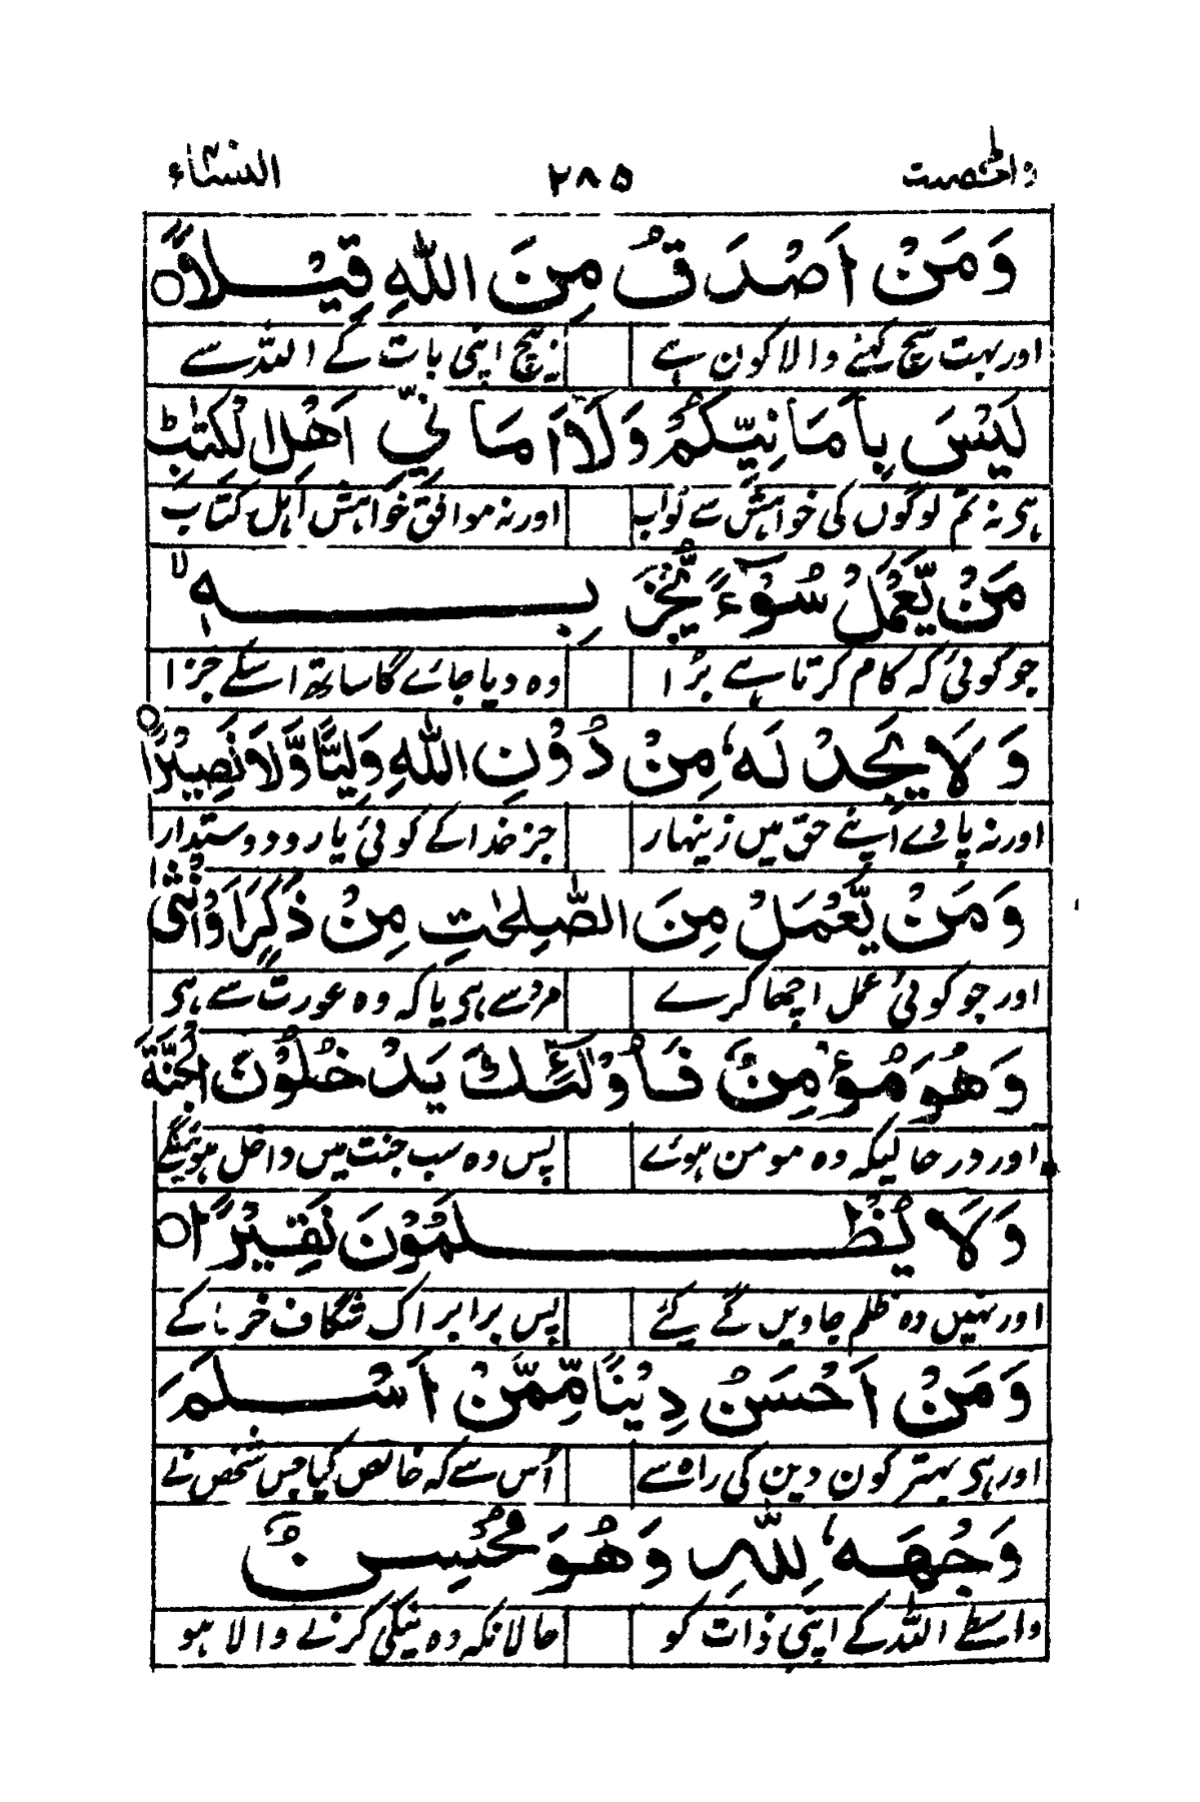 والمحصنت ۲۸۵ النسآء
وَمَنْ اَصْدَقُ مِنَ اللّٰهِ قِيْلًا ○
اور بہت سچ کہنے والا کون ہے بیچ اپنی بات کے اللہ سے
لَيْسَ بِاَمَانِيِّكُمْ وَلَاۤ اَمَانِيِّ اَهْلِ الْكِتٰبِ ؕ
ہی نہ تم لوگوں کی خواہش سے ثواب اور نہ موافق خواہش اہل کتاب
مَنْ يَّعْمَلْ سُوْٓءًا يُّجْزَ بِهٖ ۙ
جو کوئی کہ کام کرتا ہے بڑا وہ دیا جائے گا ساتھ اسکے جزا
وَلَا يَجِدْ لَهٗ مِنْ دُوْنِ اللّٰهِ وَلِيًّا وَّلَا نَصِيْرًا ○
اور نہ پاوے اپنے حق میں زینہار جز خدا کے کوئی یار و دوستدار
وَمَنْ يَّعْمَلْ مِنَ الصّٰلِحٰتِ مِنْ ذَكَرٍ اَوْ اُنْثٰى
اور جو کوئی عمل اچھا کرے مرد سے ہی یا کہ وہ عورت سے ہی
وَهُوَ مُؤْمِنٌ فَاُولٰٓئِكَ يَدْخُلُوْنَ الْجَنَّةَ
اور در حالیکہ وہ مومن ہوئے پس وہ سب جنت میں داخل ہوئینگے
وَلَا يُظْلَمُوْنَ نَقِيْرًا ○
اور نہیں وہ ظلم جاویں گے کیئے پس برابر اک شگاف خرما کے
وَمَنْ اَحْسَنُ دِيْنًا مِّمَّنْ اَسْلَمَ
اور ہی بہتر کون دین کی راہ سے اُس سے کہ خالص کیا جس شخص نے
وَجْهَهٗ لِلّٰهِ وَهُوَ مُحْسِنٌ
واسطے اللہ کے اپنی ذات کو حالانکہ وہ نیکی کرنے والا ہو